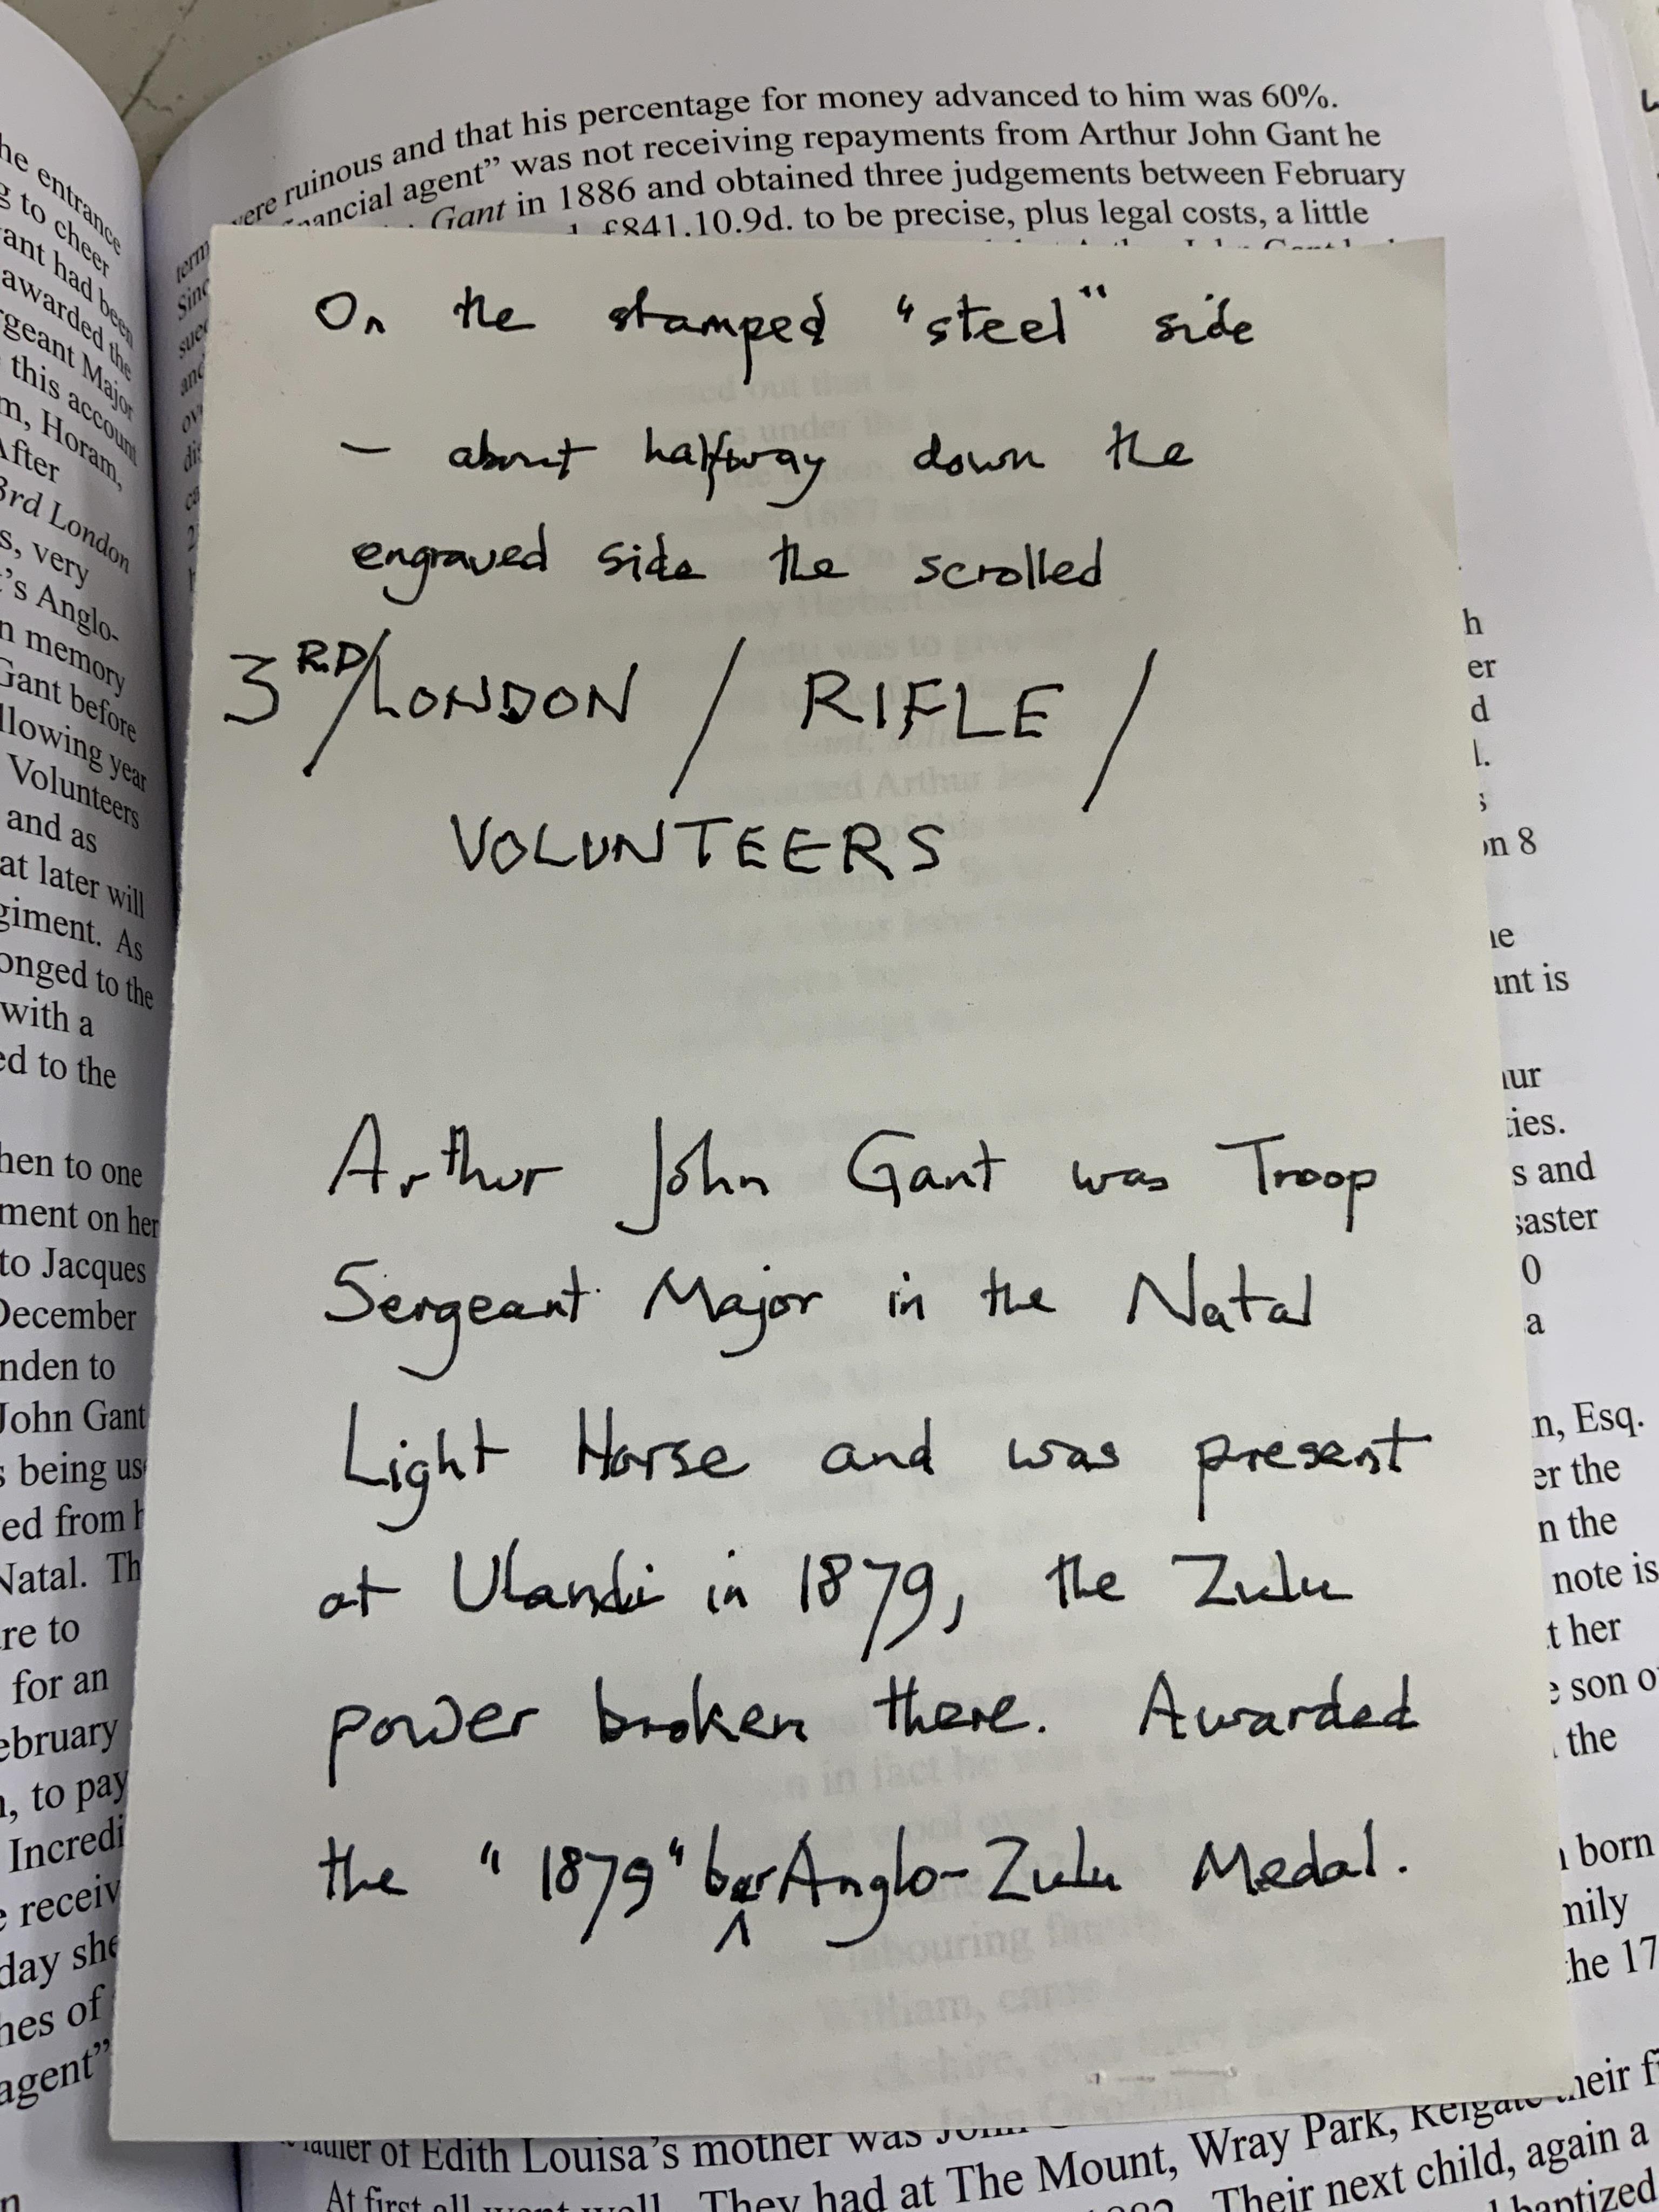 he entrance
g to cheer
ant had been
awarded the
rgeant Major
this account
m, Horam,
After
3rd London
s, very
's Anglo-
n memory
Gant before
llowing year
Volunteers
and as
at later will
giment. As
onged to the
with a
ed to the
hen to one
ment on her
to Jacques
December
nden to
John Gant
s being us
ed from h
Natal. Th
re to
for an
ebruary
, to pay
Incredi
e receiv
day she
hes of
agent"
were ruinous and that his percentage for money advanced to him was 60%.
nancial agent" was not receiving repayments from Arthur John Gant he
Gant in 1886 and obtained three judgements between February
£841.10.9d. to be precise, plus legal costs, a little
term
Sinc
sue
and
ov
di
On the stamped "steel" side
– about halfway down the
engraved side the scrolled
3RD/LONDON / RIFLE /
VOLUNTEERS
Arthur John Gant was Troop
Sergeant Major in the Natal
Light Horse and was present
at Ulandi in 1879, the Zulu
power broken there. Awarded
the "1879" bar Anglo-Zulu Medal.
h
er
d
l.
s
on 8
ne
ant is
ur
ties.
s and
saster
0
a
n, Esq.
er the
n the
note is
t her
e son o
the
born
mily
he 17
father of Edith Louisa's mother was John
At first all went well. They had at The Mount, Wray Park, Reigate their fi
Their next child, again a
baptized